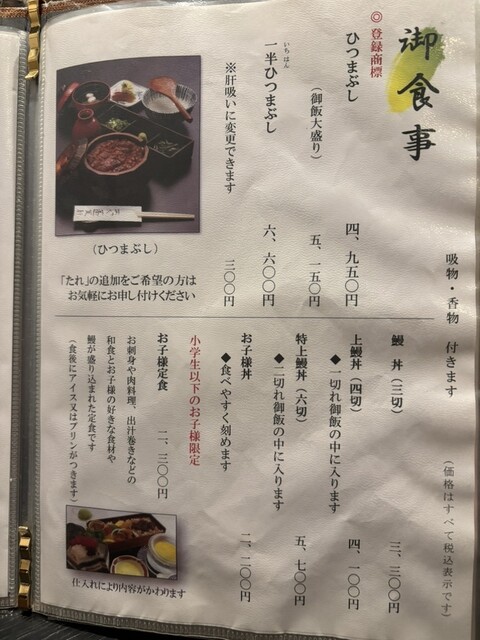 御食事
◎登録商標
ひつまぶし 四、九五〇円
(御飯大盛り) 五、一五〇円
いちはん
一半ひつまぶし 六、六〇〇円
※肝吸いに変更できます 三〇〇円
(ひつまぶし)
「たれ」の追加をご希望の方は
お気軽にお申し付けください
吸物・香物 付きます
(価格はすべて税込表示です)
鰻丼(三切) 三、三〇〇円
上鰻丼(四切) 四、一〇〇円
◆一切れ御飯の中に入ります
特上鰻丼(六切) 五、七〇〇円
◆二切れ御飯の中に入ります
お子様丼 二、二〇〇円
◆食べやすく刻めます
小学生以下のお子様限定
お子様定食 二、三〇〇円
お刺身や肉料理、出汁巻きなどの
和食とお子様の好きな食材や
鰻が盛り込まれた定食です
(食後にアイス又はプリンがつきます)
仕入れにより内容がかわります